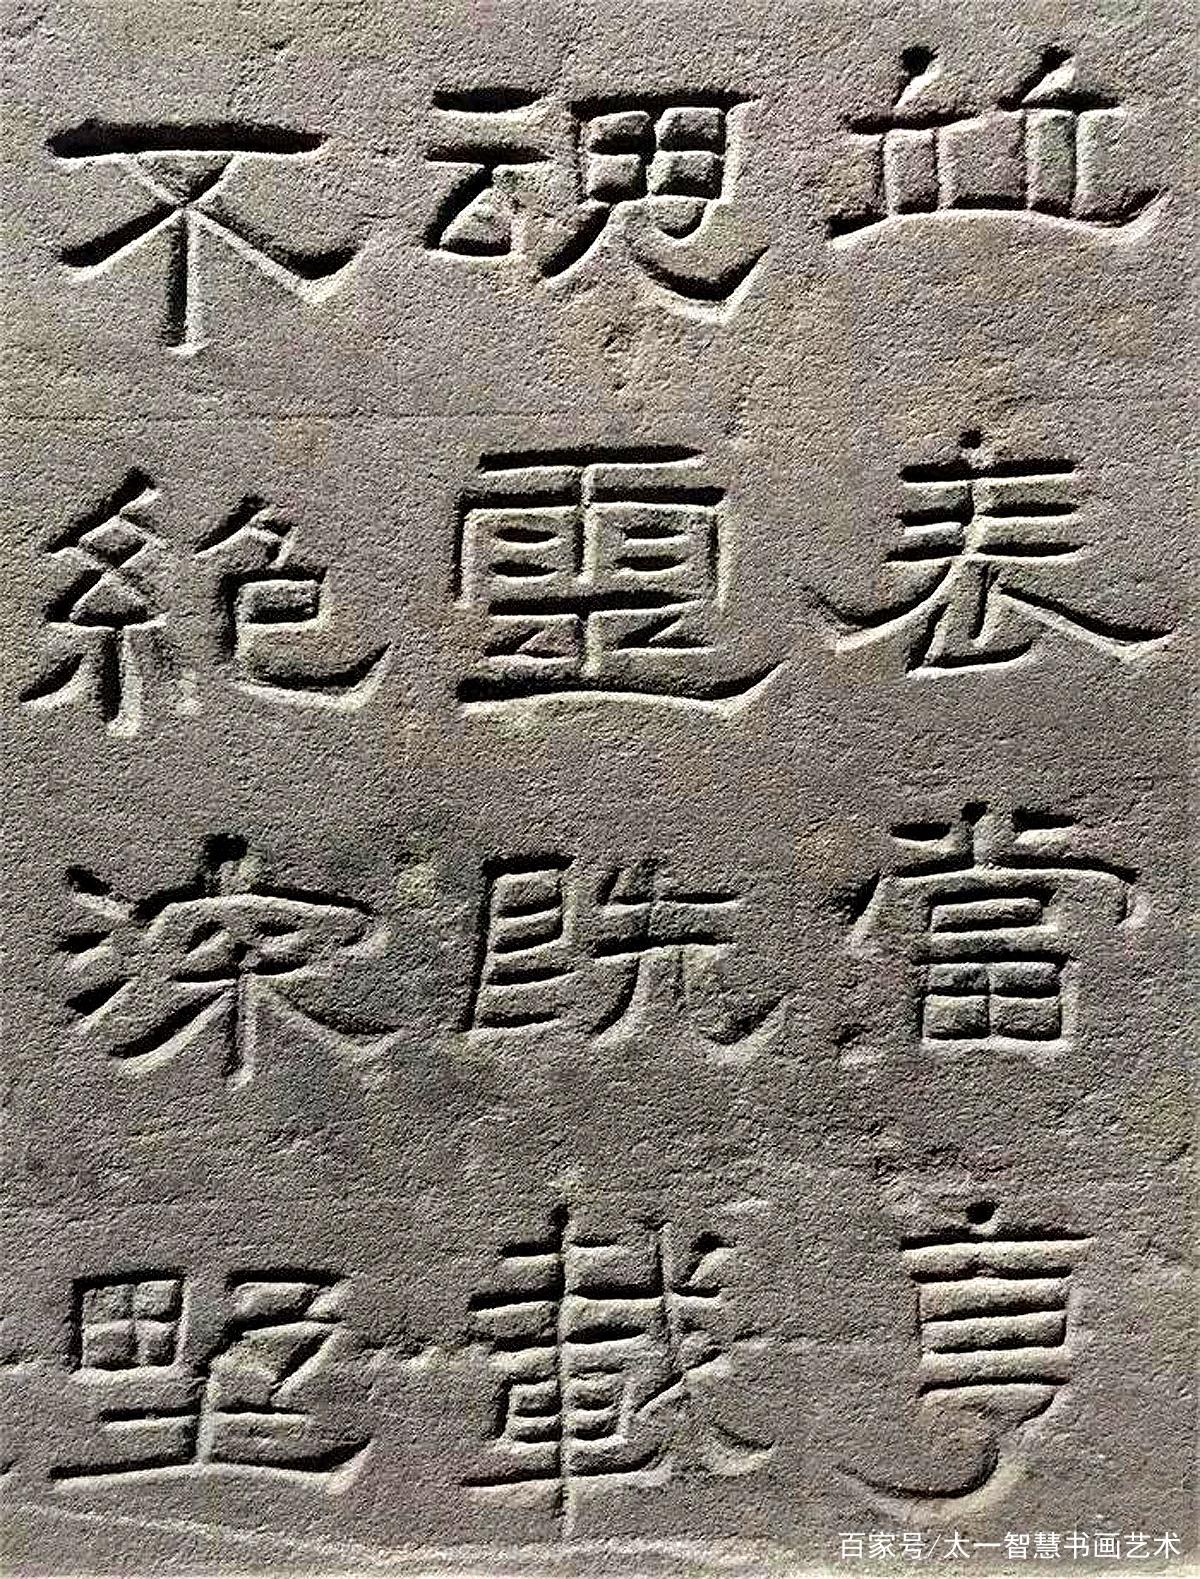 並表當亨
魂靈既載
不絕深野
百家号/太一智慧书画艺术